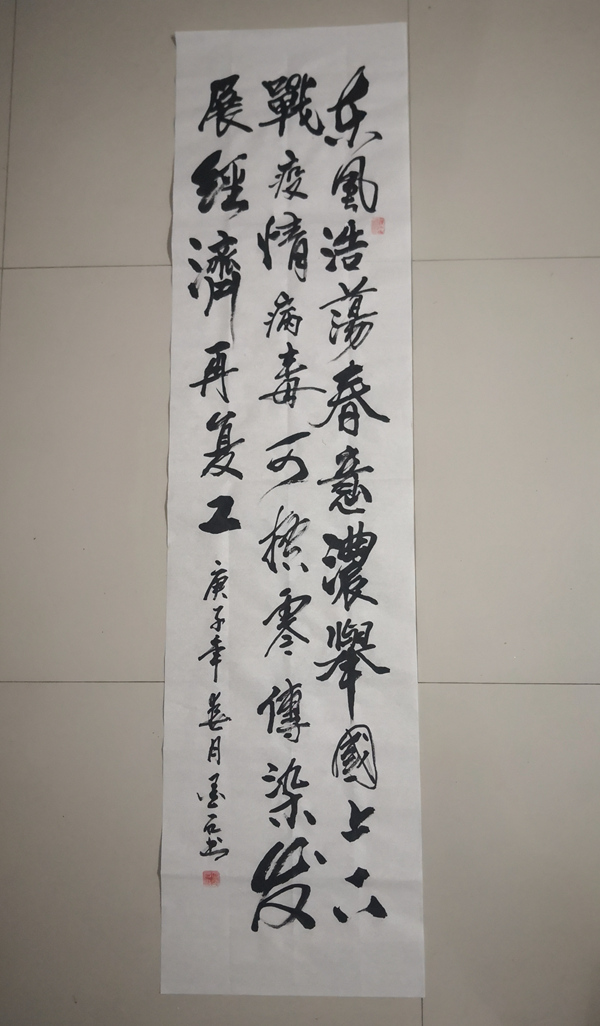 东風浩蕩春意濃舉國上下
戰疫情病毒可控零傳染发
展經濟再复工 庚子年 月墨石书